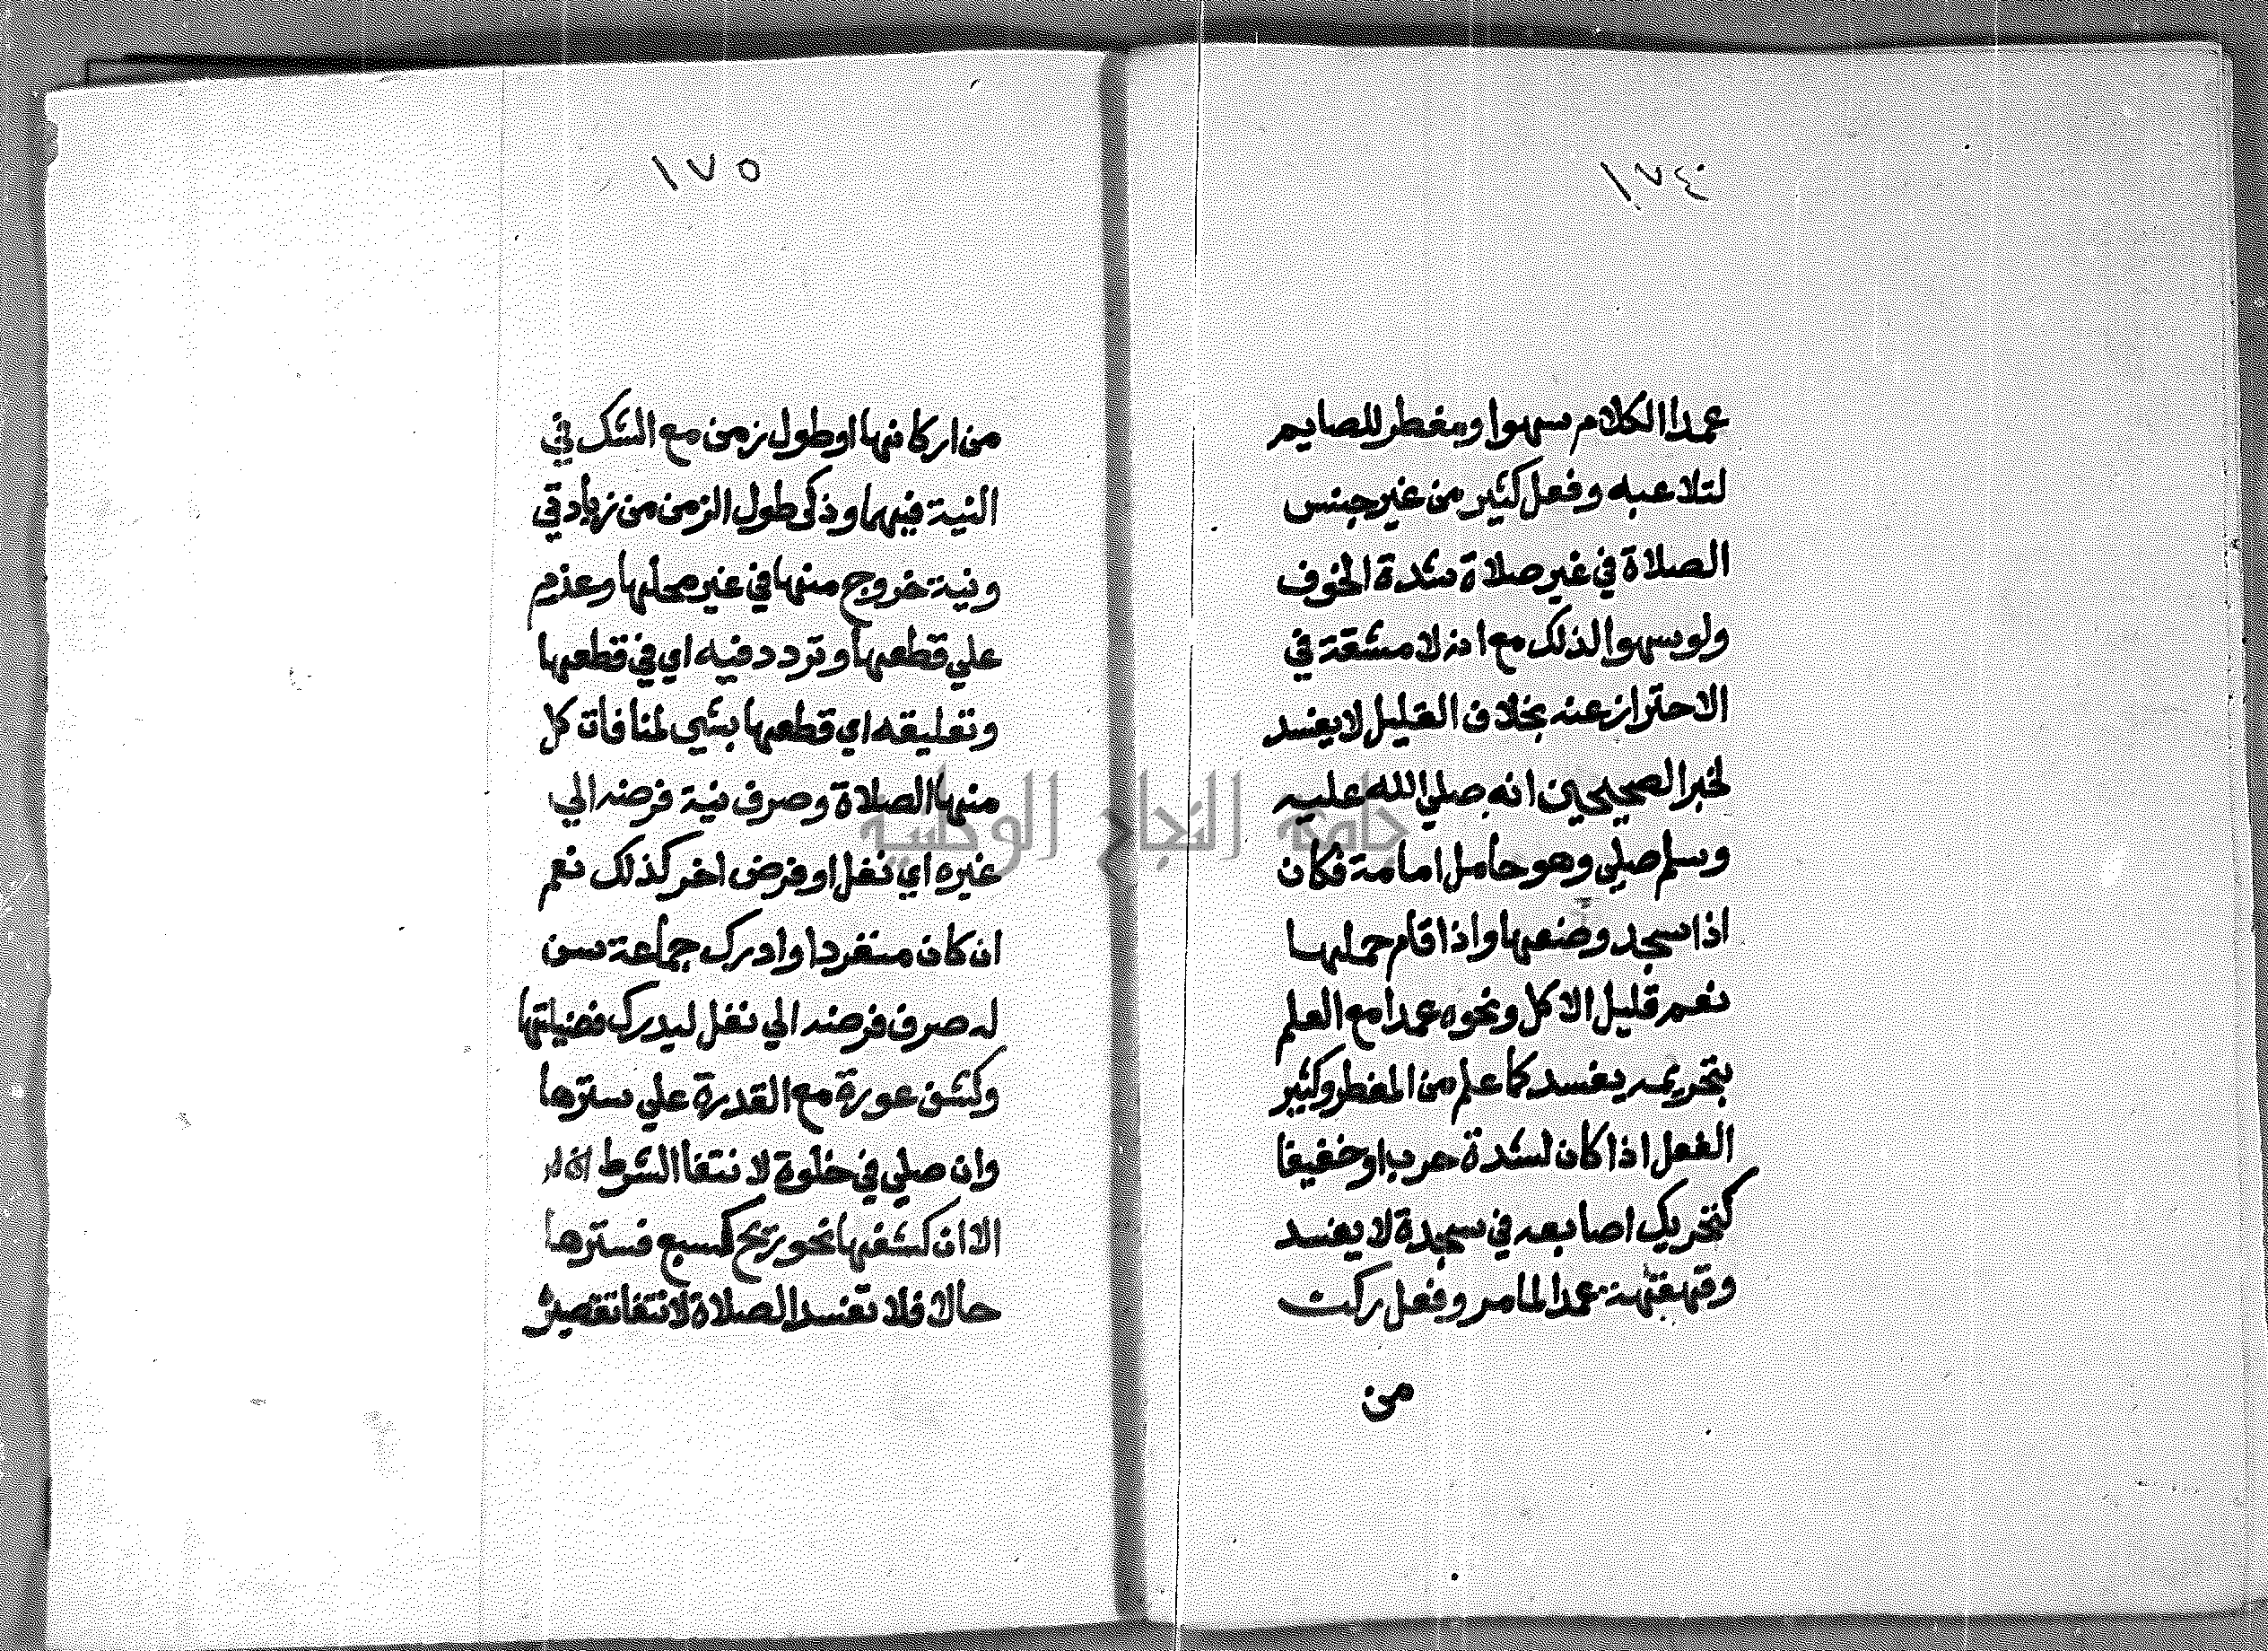 ١٧٤
عمدا الكلام سهوا ومفطر للصايم
لتلاعبه وفعل كثير من غير جنس
الصلاة في غير صلاة شدة الخوف
ولو سهوا لذلك مع انه لا مشقة في
الاحتراز عنه بخلاف القليل لا يفسد
لخبر الصحيحين انه صلي الله عليه
وسلم صلي وهو حامل امامة فكان
اذا سجد وضعها واذا قام حملها
نعم قليل الاكل ونحوه عمدا مع العلم
بتحريمه يفسد كما علم من المفطر وكثير
الفعل اذا كان لشدة حرب او خفيفا
كتحريك اصابعه في سجدة لا يفسد
وقهقهة عمدا لما مر وفعل ركن
من
١٧٥
من اركانها او طول زمن مع الشك في
النية فيهما وذكر طول الزمن من زيادتي
ونية خروج منها في غير محلها وعزم
علي قطعها وتردد فيه اي في قطعها
وتعليقه اي قطعها بشي لمنافات كل
منها الصلاة وصرف نية فرضه الي
غيره اي نفل او فرض اخر كذلك نعم
ان كان منفردا وادرك جماعة سن
له صرف فرضه الي نفل ليدرك فضيلتها
وكشف عورة مع القدرة علي سترها
وان صلي في خلوة لا نتفا الشرط
الا ان كشفها نحو ريح كسبع فسترها
حالا فلا تفسد الصلاة لانتفا تقصيره
جامعة النجاح الوطنية